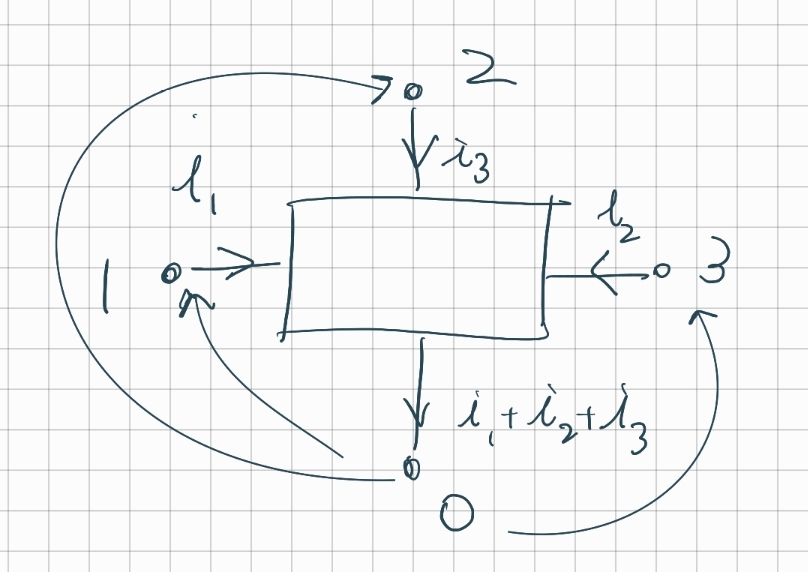 2
i₃
i₁
i₂
1
3
i₁+i₂+i₃
0